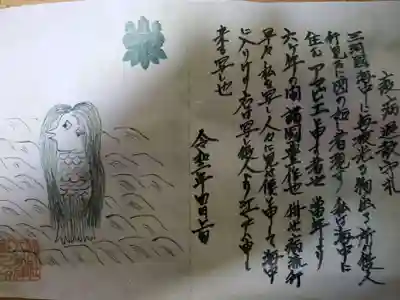 疫病退散
國海中に毎夜光る物出る所役人
行見るに図の如く者現す 私は海中に
住むアマビエと申す者也 當年より
六ヶ年の間諸國豊作也 併せ病流行
早々私を写し人々に見せ候と申して海中
に入りけり右は写し役人より江戸へ申し
来る写し也
令和二年